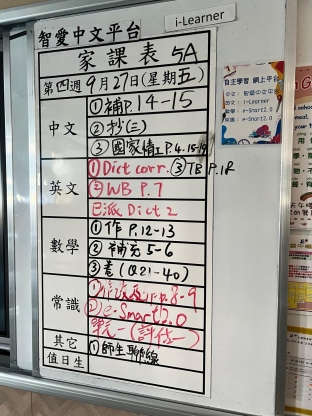 i-Learner
智愛中文平台
家課表 5A
第四週 9月27日(星期五)
中文
①補P.14-15
②抄(三)
③國家情 P.4.15-19
英文
①Dict corr. ③TB P.18
②WB P.7
已派 Dict 2
數學
①作 P.12-13
②補充5-6
③卷(Q21-40)
常識
P.8-9
②e-Smart2.0
單元一(評估一)
其它
值日生
①師生聯線
自主學習 網上平台
中文:智愛中文平台
英文:i-Learner
數學:e-Smart2.0
常識:e-Smart2.0